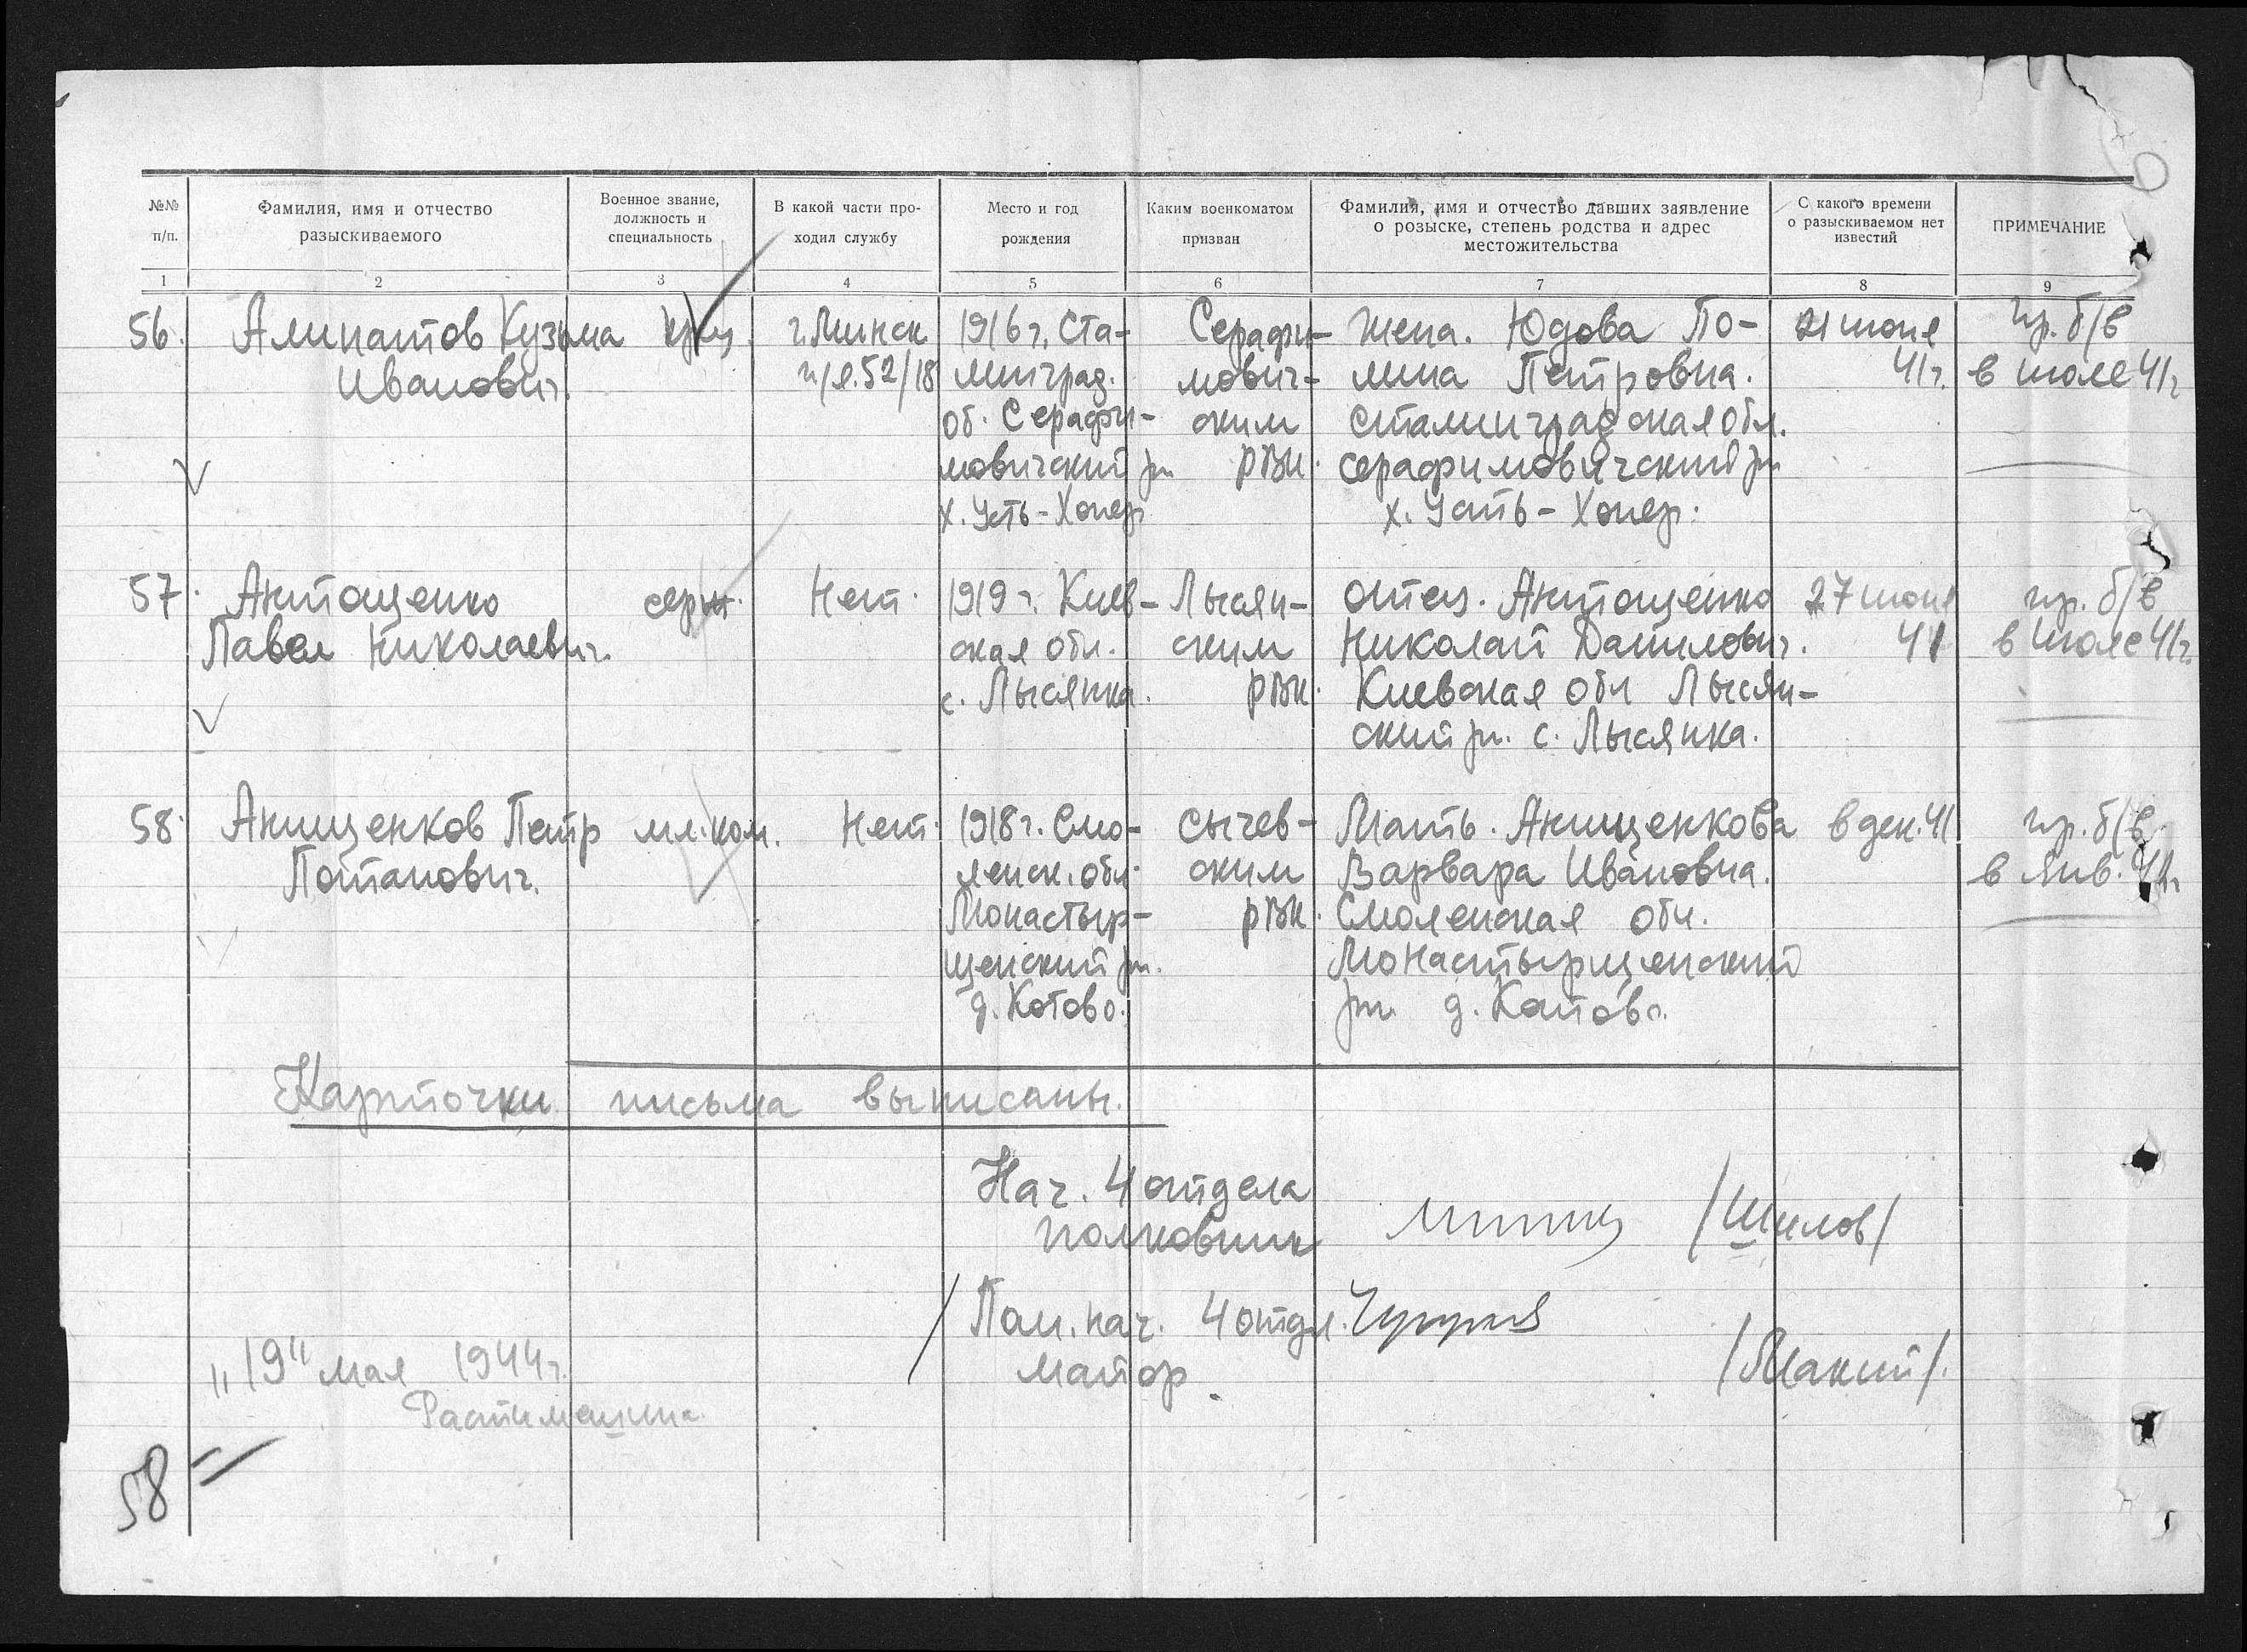 №№ п/п.
Фамилия, имя и отчество разыскиваемого
Военное звание, должность и специальность
В какой части проходил службу
Место и год рождения
Каким военкоматом призван
Фамилия, имя и отчество давших заявление о розыске, степень родства и адрес местожительства
С какого времени о разыскиваемом нет известий
ПРИМЕЧАНИЕ
1 2 3 4 5 6 7 8 9
56.
Алипатов Кузьма
Иванович.
г. Минск
п/я.52/18
1916 г. Ста-
линград.
об. Серафи-
мовичский рн
х. Усть-Хопер
Серафи-
мович-
ским
РВК.
Жена. Юдова По-
лина Петровна.
Сталинградская обл.
Серафимовичский рн
х. Усть-Хопер.
21 июня
41г.
пр. б/в
в июле 41г
57.
Антощенко
Павел Николаевич.
серж.
Нет.
1919 г. Киев-
ская обл.
с. Лысянка.
Лысян-
ским
РВК.
Отец. Антощенко
Николай Данилович.
Киевская обл Лысян-
ский рн. с. Лысянка.
27 июня
41
пр. б/в
в июле 41г.
58.
Анищенков Петр
Потапович.
мл. ком.
Нет.
1918 г. Смо-
ленск. обл.
Монастыр-
щенский рн.
д. Котово.
Сычев-
ским
РВК.
Мать. Анищенкова
Варвара Ивановна.
Смоленская обл.
Монастырщенский
рн. д. Котово.
в дек. 41
пр. б/в
в янв.
Карточки письма выписаны.
Нач. 4 отдела
полковник
/Шилов/
Пом. нач. 4 отдл.
майор
"19" мая 1944г.
58=